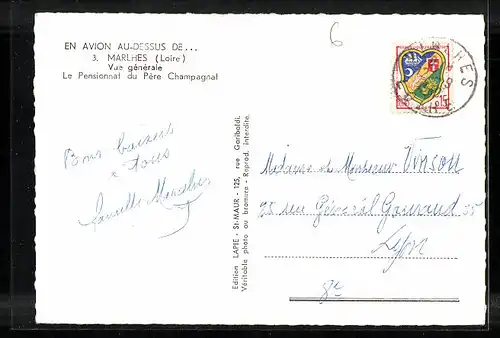 6
EN AVION AU-DESSUS DE...
3. MARLHES (Loire)
Vue générale
Le Pensionnat du Père Champagnat
0,15
Bons baisers
à tous
Famille
Edition LAPIE - St-MAUR - 125, rue Garibaldi.
Véritable photo au bromure - Reprod. interdite.
Madame et Monsieur Vinson
25 rue Général Gouraud
Lyon